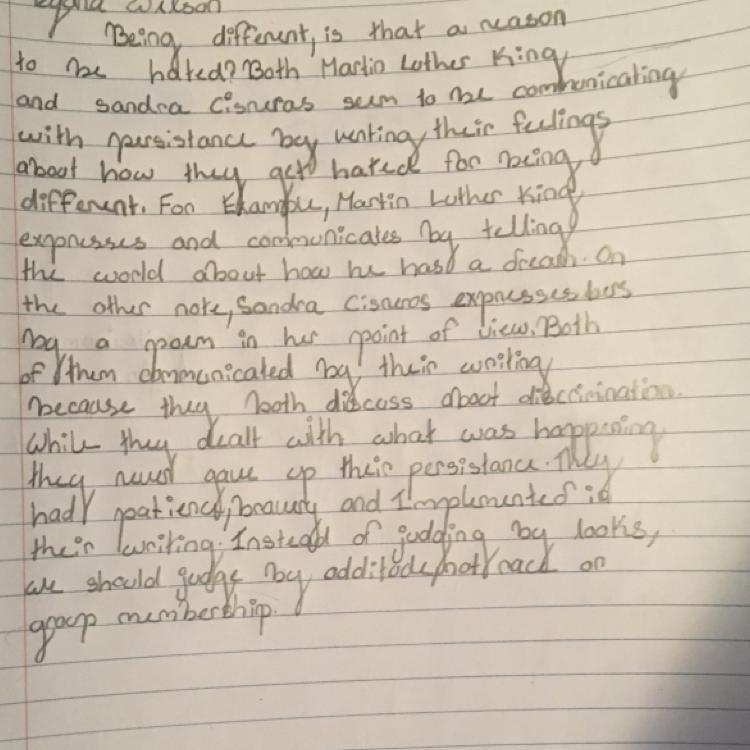 Wilson
Being different, is that a reason
to be hated? Both Martin Luther King
and sandra Cisneras seem to be communicating
with persistance by venting their feelings
about how they get hated for being
different. For Example, Martin Luther King
expresses and communicates by telling
the world about how he has a dream. On
the other note, Sandra Cisneros expresses hers
by a poem in her point of view. Both
of them communicated by their writing
because they both discuss about discrimination.
While they dealt with what was happening,
they never gave up their persistance. They
had patience, bravery and Implemented id
their writing. Instead of judging by looks,
we should judge by additude, not race or
group membership.